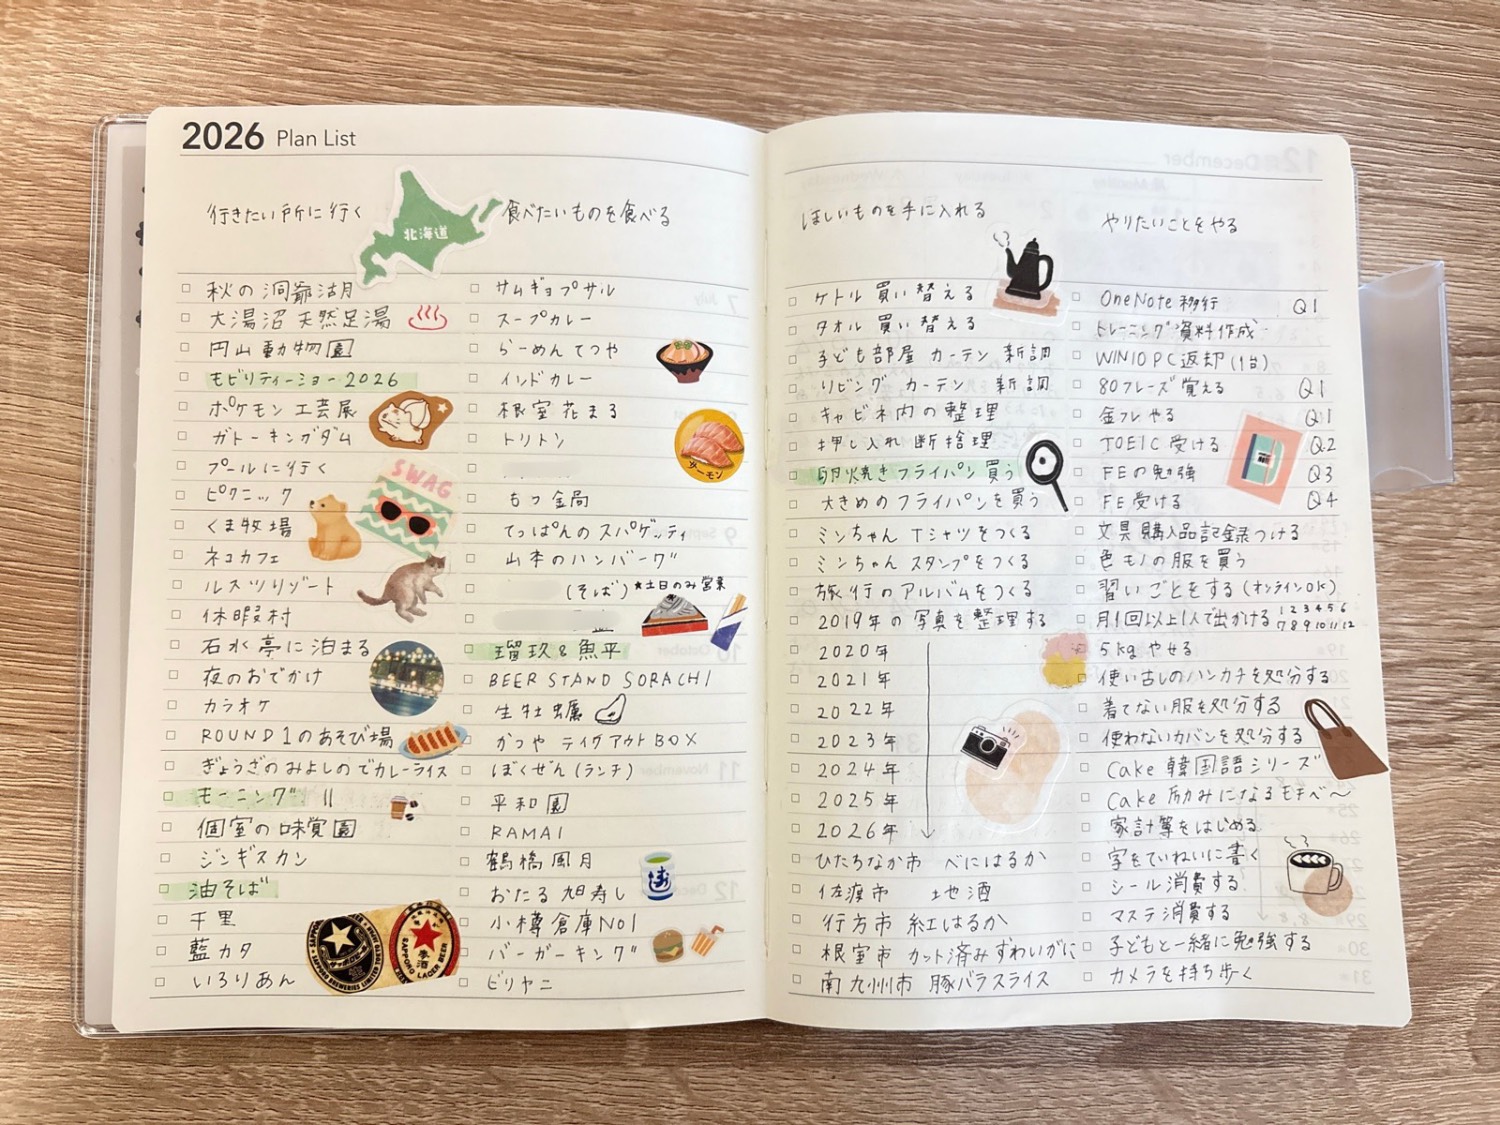 2026 Plan List
行きたい所に行く
北海道
秋の洞爺湖
大湯沼 天然足湯
円山動物園
モビリティーショー2026
ポケモン工芸展
ガトーキングダム
プールに行く
ピクニック
くま牧場
ネコカフェ
ルスツリゾート
休暇村
石水亭に泊まる
夜のおでかけ
カラオケ
ROUND1のあそび場
ぎょうざのみよしのでカレーライス
モーニング 〃
個室の味覚園
ジンギスカン
油そば
千里
藍カタ
いろりあん
SWAG
食べたいものを食べる
サムギョプサル
スープカレー
らーめんてつや
インドカレー
根室花まる
トリトン
もつ金局
てっぱんのスパゲッティ
山本のハンバーグ
(そば) *土日のみ営業
瑠玖&魚平
BEER STAND SORACHI
生牡蠣
かつや テイクアウトBOX
ぼくぜん(ランチ)
平和園
RAMAI
鶴橋風月
おたる 旭寿し
小樽倉庫No1
バーガーキング
ビリヤニ
サーモン
ほしいものを手に入れる
ケトル 買い替える
タオル 買い替える
子ども部屋 カーテン 新調
リビング カーテン 新調
キャビネ内の整理
押し入れ断捨離
卵焼きフライパン買う
大きめのフライパンを買う
ミンちゃん Tシャツをつくる
ミンちゃん スタンプをつくる
旅行のアルバムをつくる
2019年の写真を整理する
2020年
2021年
2022年
2023年
2024年
2025年
2026年
ひたちなか市 べにはるか
佐渡市 地酒
行方市 紅はるか
根室市 カット済みずわいがに
南九州市 豚バラスライス
やりたいことをやる
OneNote移行 Q1
トレーニング資料作成
WIN10PC返却(1台)
80フレーズ覚える Q1
金フレやる Q1
TOEIC受ける Q2
FEの勉強 Q3
FE受ける Q4
文具購入品記録つける
色モノの服を買う
習いごとをする(オンラインOK)
月1回以上1人で出かける 1 2 3 4 5 6 7 8 9 10 11 12
5kgやせる
使い古しのハンカチを処分する
着てない服を処分する
使わないカバンを処分する
Cake 韓国語シリーズ
Cake 励みになるモチベ〜
家計簿をはじめる
字をていねいに書く
シール消費する
マステ消費する
子どもと一緒に勉強する
カメラを持ち歩く